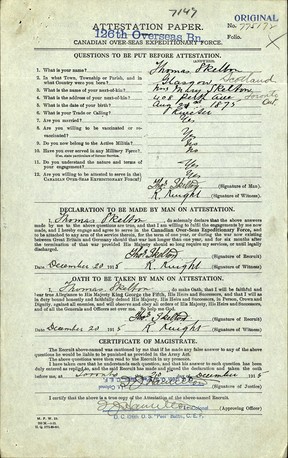 7147
ATTESTATION PAPER.
ORIGINAL
No.
126th Overseas Bn.
Folio.
CANADIAN OVER-SEAS EXPEDITIONARY FORCE.
QUESTIONS TO BE PUT BEFORE ATTESTATION.
(ANSWERS)
1. What is your name?
Thomas Skelton
2. In what Town, Township or Parish, and in what Country were you born?
Glasgow Scotland
3. What is the name of your next-of-kin?
Mrs Mary Skelton
4. What is the address of your next-of-kin?
Toronto Ont.
5. What is the date of your birth?
Aug 1875
6. What is your Trade or Calling?
7. Are you married?
Yes
8. Are you willing to be vaccinated or re-vaccinated?
Yes
9. Do you now belong to the Active Militia?
10. Have you ever served in any Military Force?
No
11. Do you understand the nature and terms of your engagement?
Yes
12. Are you willing to be attested to serve in the CANADIAN OVER-SEAS EXPEDITIONARY FORCE?
Yes
Thos Skelton (Signature of Man)
R. Knight (Signature of Witness)
DECLARATION TO BE MADE BY MAN ON ATTESTATION.
I, Thomas Skelton, do solemnly declare that the above answers
made by me to the above questions are true, and that I am willing to fulfil the engagements by me now
made, and I hereby engage and agree to serve in the Canadian Over-Seas Expeditionary Force, and to
be attached to any arm of the service therein, for the term of one year, or during the war now existing
between Great Britain and Germany should that war last longer than one year, and for six months after
the termination of that war provided His Majesty should so long require my services, or until legally
discharged.
Thos Skelton (Signature of Recruit)
Date December 20 1915 R. Knight (Signature of Witness)
OATH TO BE TAKEN BY MAN ON ATTESTATION.
I, Thomas Skelton, do make Oath, that I will be faithful and
bear true Allegiance to His Majesty King George the Fifth, His Heirs and Successors, and that I will as
in duty bound honestly and faithfully defend His Majesty, His Heirs and Successors, in Person, Crown and
Dignity, against all enemies, and will observe and obey all orders of His Majesty, His Heirs and Successors,
and of all the Generals and Officers set over me. So help me God.
Thos Skelton (Signature of Recruit)
Date December 20 1915 R. Knight (Signature of Witness)
CERTIFICATE OF MAGISTRATE.
The Recruit above-named was cautioned by me that if he made any false answer to any of the above
questions he would be liable to be punished as provided in the Army Act.
The above questions were then read to the Recruit in my presence.
I have taken care that he understands each question, and that his answer to each question has been
duly entered as replied to, and the said Recruit has made and signed the declaration and taken the oath
before me, at Toronto this 20 day of December 1915
(Signature of Justice)
I certify that the above is a true copy of the Attestation of the above-named Recruit.
F. J. Hamilton (Approving Officer)
O.C. 126th O.S. "Peel" Battn., C.E.F.
M. F. W. 23.